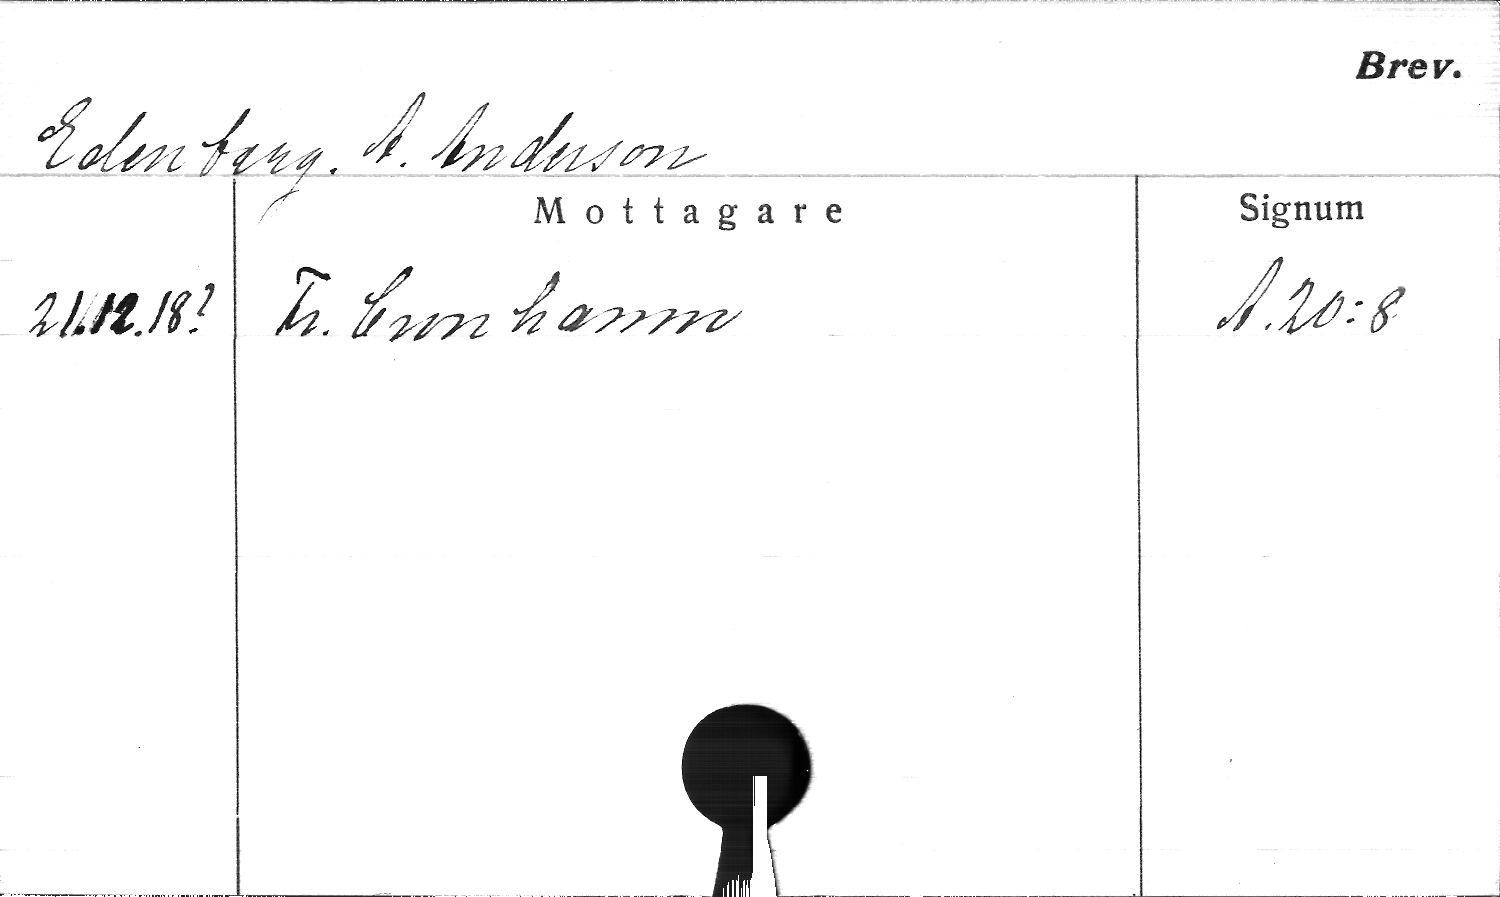 Brev.
Edenberg. A. Anderson
Mottagare
Signum
21.12.18?
Fr. Cronhamn
A.20:8